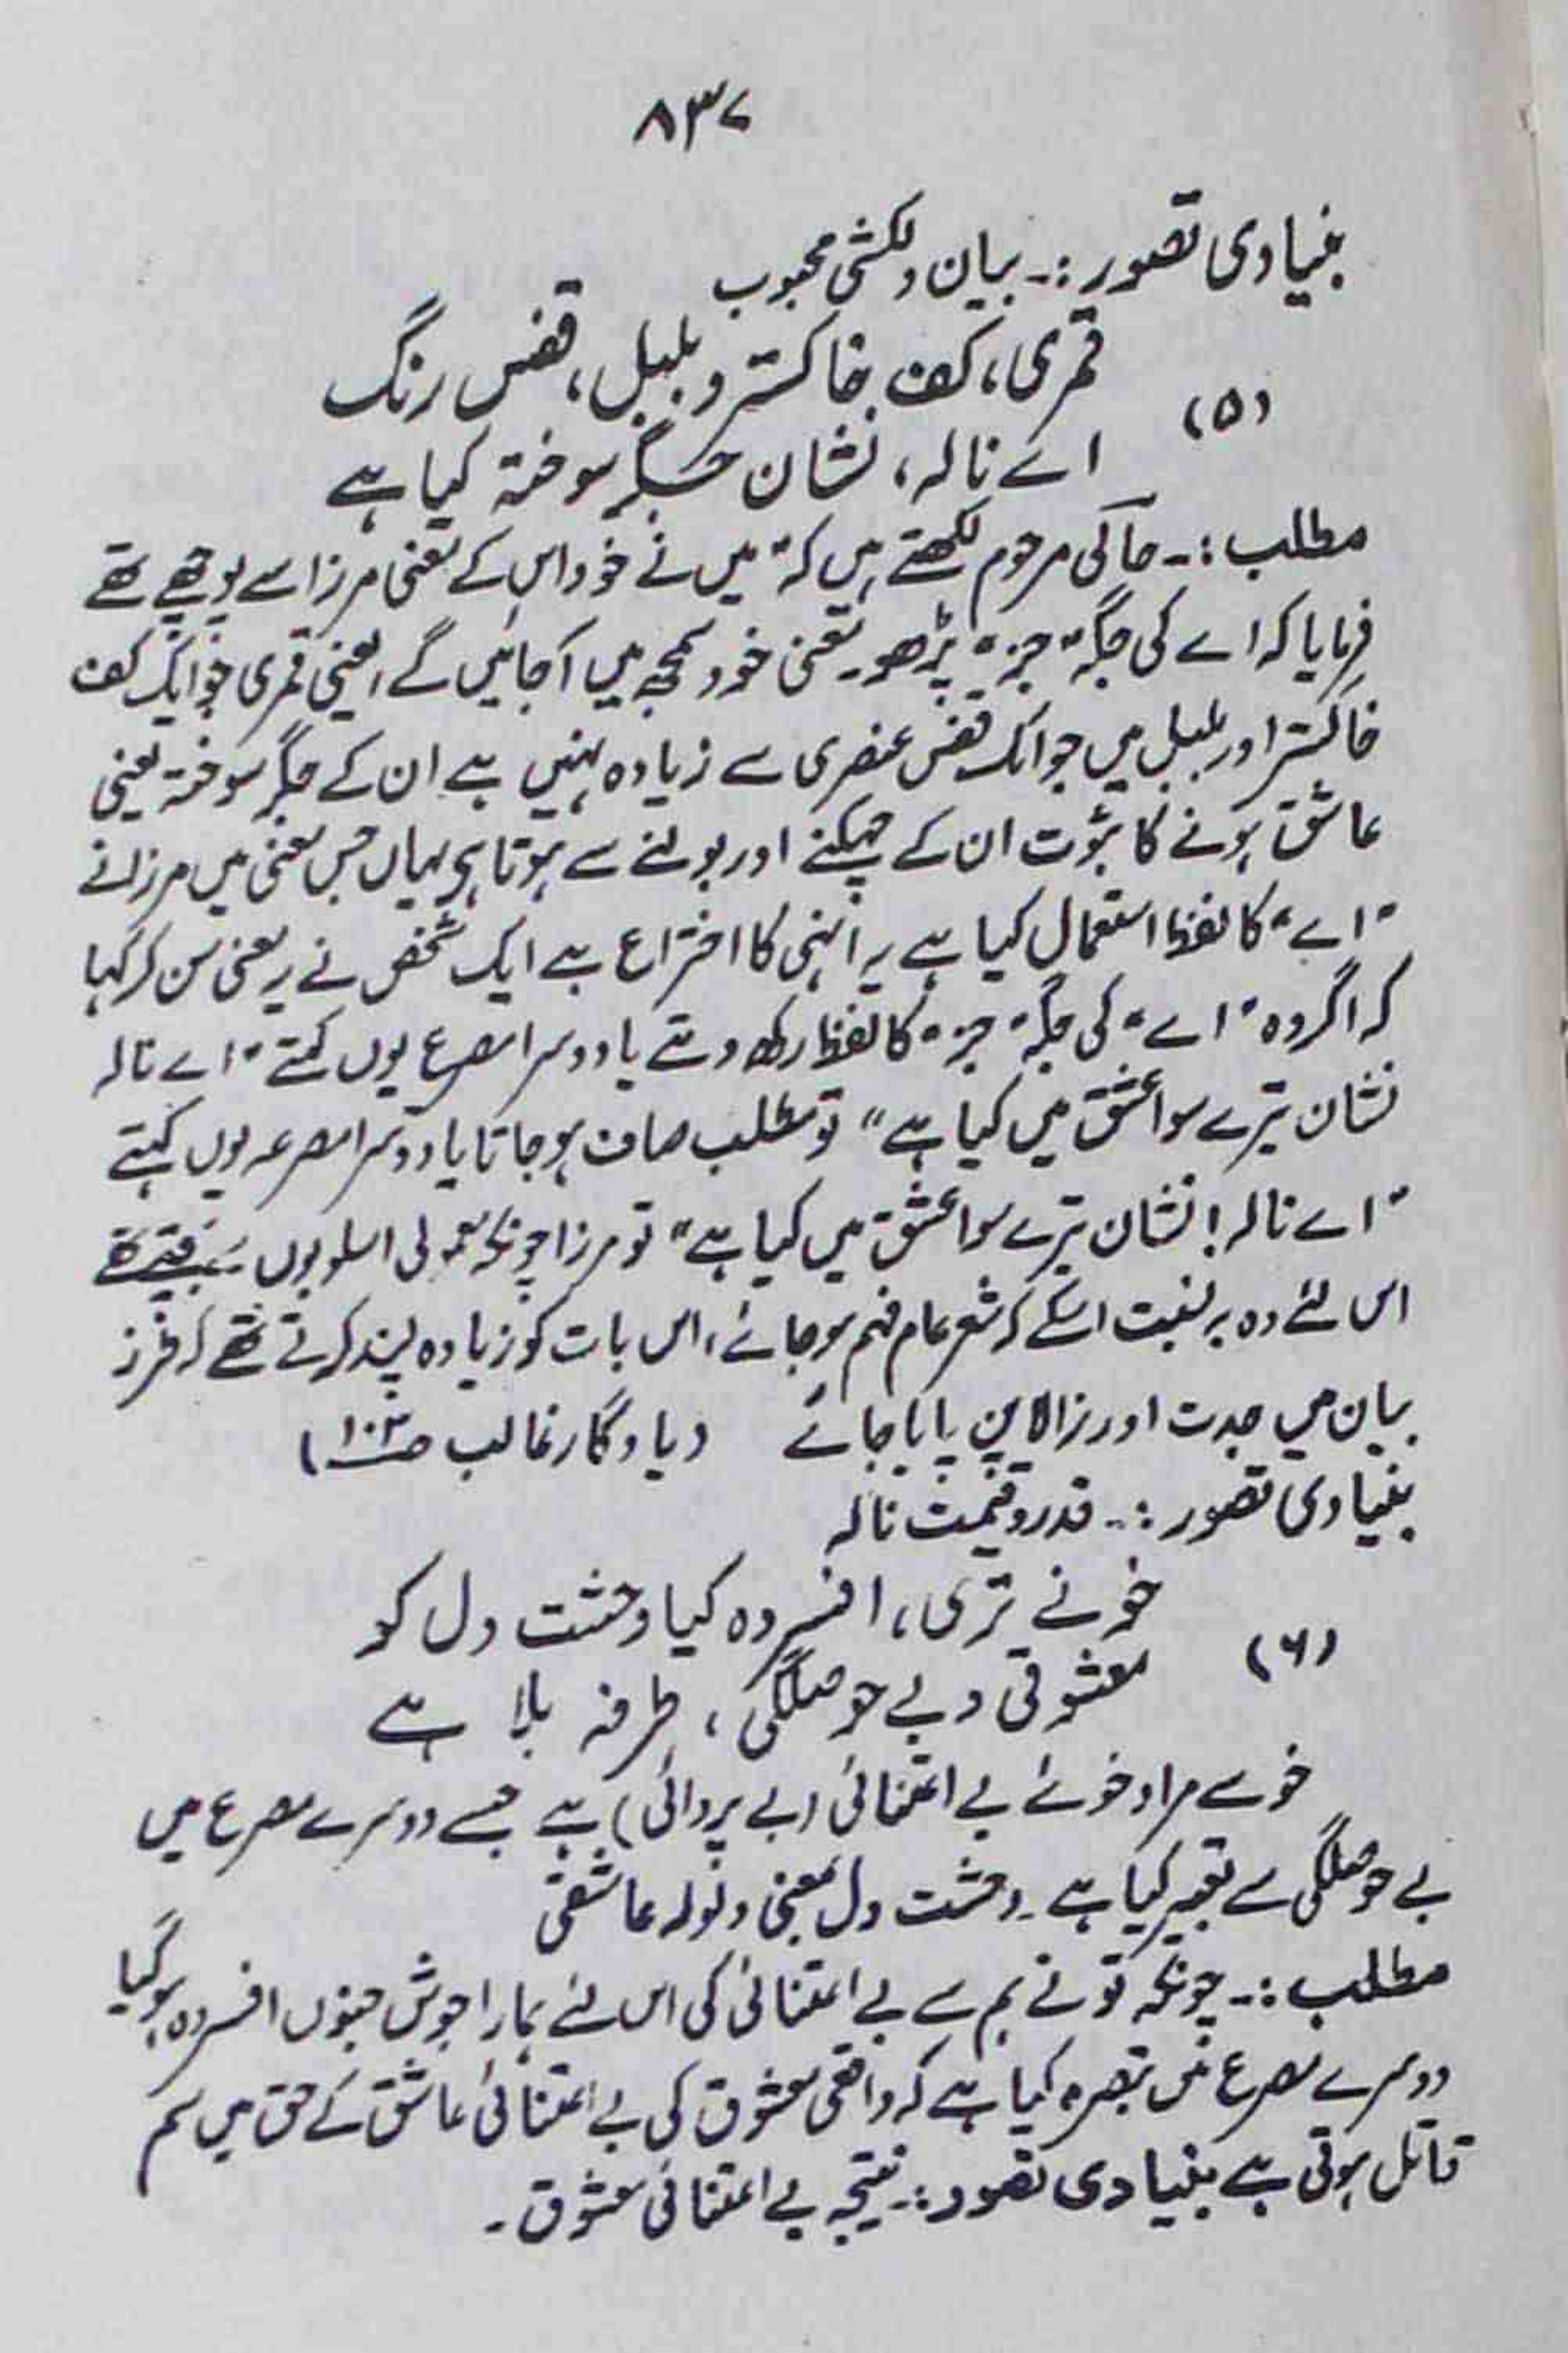 ۸۳۷
بنیادی تصور :۔ بیان دلکشی محبوب
قمری، کف خاکستر و بلبل، قفس رنگ
(۵)
اے نالہ، نشان جگر سوختہ کیا ہے
مطلب :۔ حالی مرحوم لکھتے ہیں کہ "میں نے خود اس کے معنی مرزا سے پوچھے تھے
فرمایا کہ اے کی جگہ "جز" پڑھو۔ معنی خود سمجھ میں آجائیں گے، یعنی قمری جو ایک کف
خاکستر اور بلبل میں جو ایک قفس عنصری سے زیادہ نہیں ہے ان کے جگر سوختہ یعنی
عاشق ہونے کا ثبوت ان کے چہکنے اور بولنے سے ہوتا ہی یہاں جس معنی میں مرزا نے
"اے" کا لفظ استعمال کیا ہے یہ انہی کا اختراع ہے ایک شخص نے یہ معنی سن کر کہا
کہ اگر وہ "اے" کی جگہ "جز" کا لفظ رکھ دیتے یا دوسرا مصرع یوں کہتے "اے نالہ
نشان تیرے سوا عشق میں کیا ہے" تو مطلب صاف ہوجاتا یا دوسرا مصرعہ یوں کہتے
"اے نالہ! نشان تیرے سوا عشق میں کیا ہے" تو مرزا چونکہ معمولی اسلوبوں سے بچتے تھے
اس لئے وہ بہ نسبت اسکے کہ شعر عام فہم ہوجائے، اس بات کو زیادہ پسند کرتے تھے کہ طرز
بیان میں جدت اور نرالاپن پایا جائے (یادگار غالب صـ۱۰۳)
بنیادی تصور :۔ قدر و قیمت نالہ
خو نے تری، افسردہ کیا وحشت دل کو
(۶)
معشوقی و بے حوصلگی، طرفہ بلا ہے
خو سے مراد خوئے بے اعتنائی (بے پروائی) ہے جسے دوسرے مصرع میں
بے حوصلگی سے تعبیر کیا ہے۔ وحشت دل بمعنی ولولہ عاشقی
مطلب :۔ چونکہ تو نے ہم سے بے اعتنائی کی اس لئے ہمارا جوش جنوں افسردہ ہوگیا
دوسرے مصرع میں تبصرہ کیا ہے کہ واقعی معشوق کی بے اعتنائی عاشق کے حق میں سم
قاتل ہوتی ہے بنیادی تصور :۔ نتیجہ بے اعتنائی معشوق۔